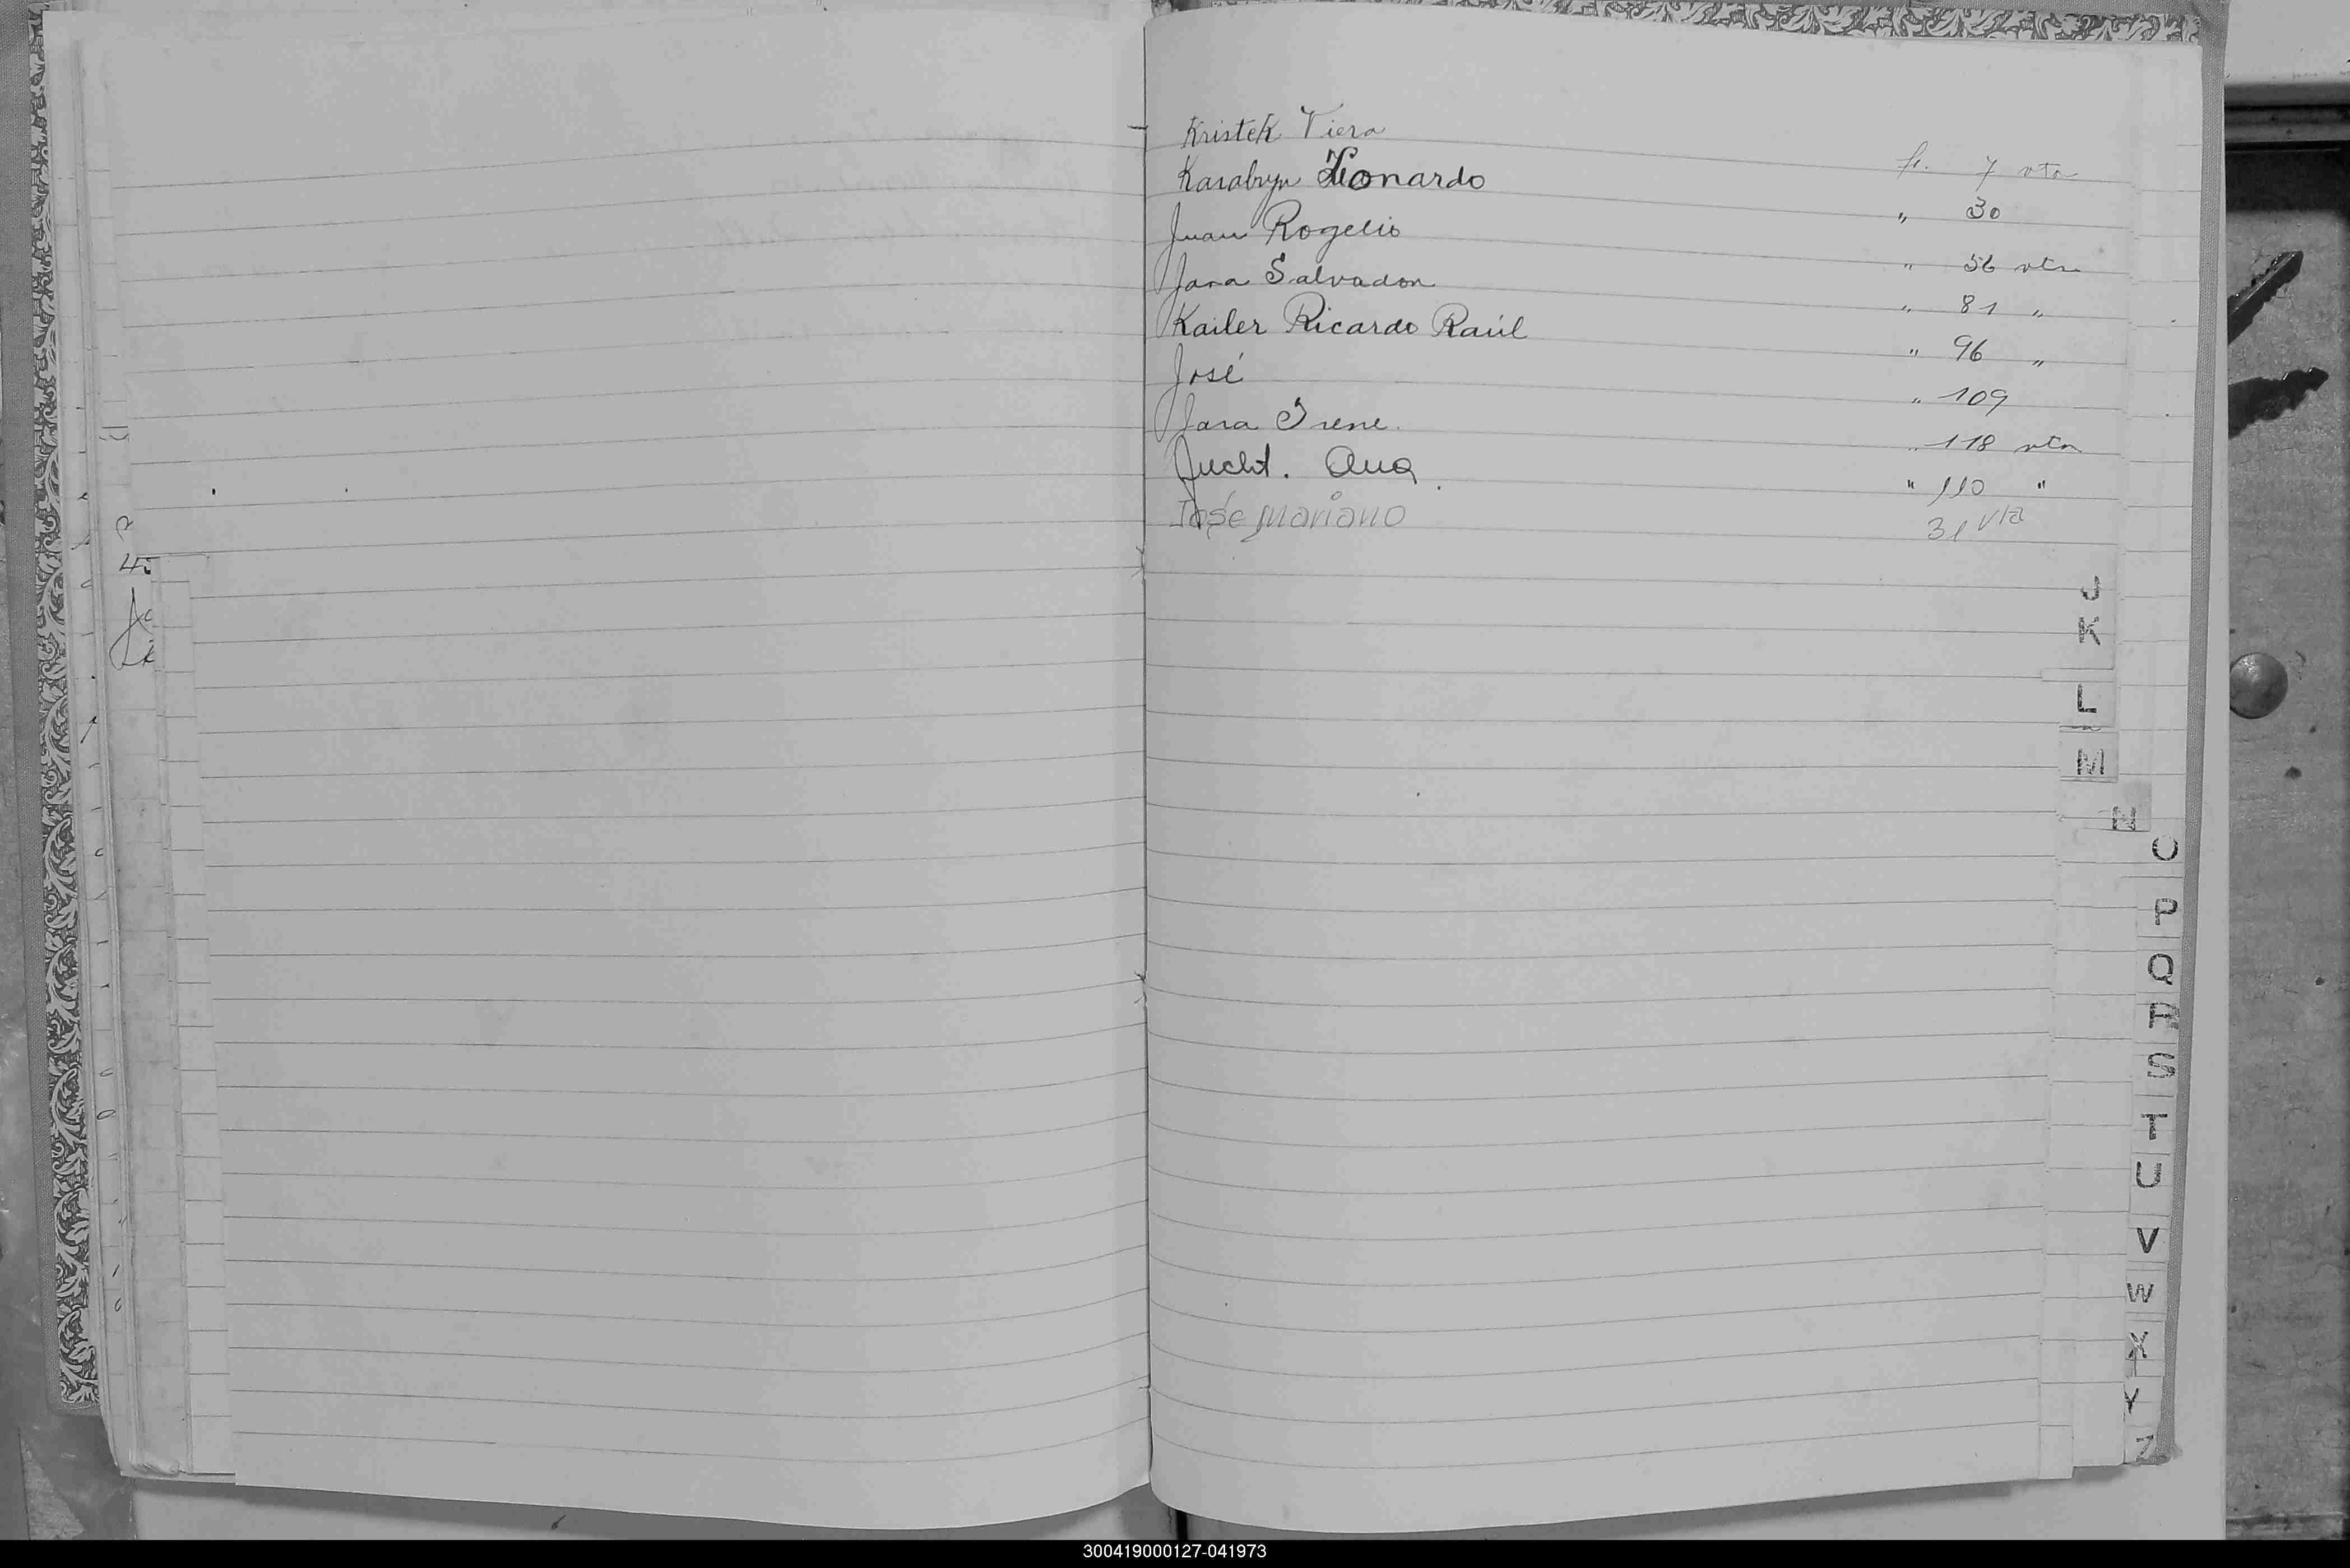 Kristek Viera fs. 7 vta
Karabyn Leonardo " 30
Juan Rogelio " 56 vta
Jara Salvador " 81 "
Kailer Ricardo Raúl " 96 "
José " 109
Jara Irene. " 118 vta
Jucht. Ana " 110 "
José Mariano 31 vta
J
K
L
M
N
O
P
Q
R
S
T
U
V
W
X
Y
Z
300419000127-041973